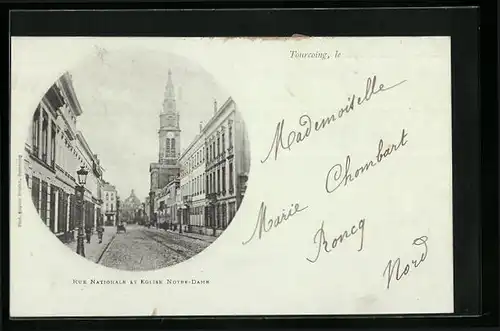 Tourcoing, le
Mademoiselle
Chombart
Marie
Roncq
Nord
RUE NATIONALE ET EGLISE NOTRE-DAME